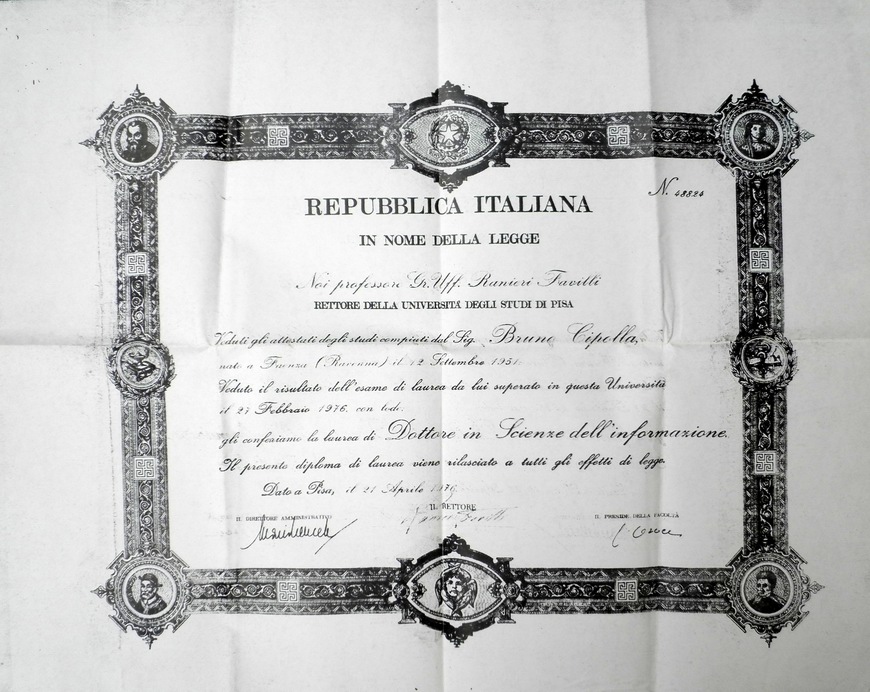 N. 48824
REPUBBLICA ITALIANA
IN NOME DELLA LEGGE
Noi professore Gr. Uff. Ranieri Favilli
RETTORE DELLA UNIVERSITÁ DEGLI STUDI DI PISA
Veduti gli attestati degli studi compiuti dal Sig. Bruno Cipolla,
nato a Faenza (Ravenna) il 12 Settembre 1951
Veduto il risultato dell'esame di laurea da lui superato in questa Università
il 27 Febbraio 1976, con lode,
gli conferiamo la laurea di Dottore in Scienze dell'informazione.
Il presente diploma di laurea viene rilasciato a tutti gli effetti di legge.
Dato a Pisa, il 21 Aprile 1976
IL DIRETTORE AMMINISTRATIVO
IL RETTORE
IL PRESIDE DELLA FACOLTÀ